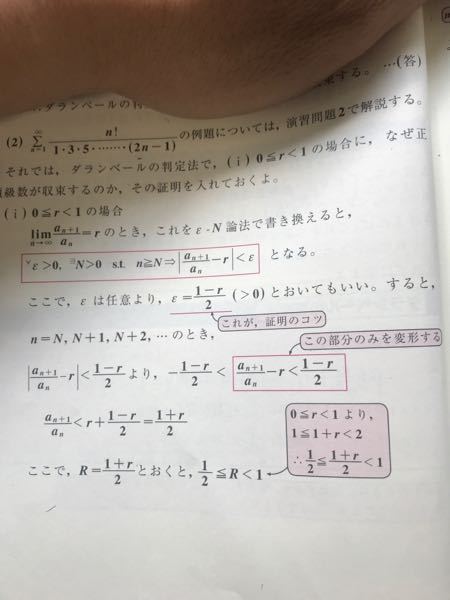 束する。 …(答)
ダランベールの判
(2) $\sum_{n=1}^{\infty} \frac{n!}{1 \cdot 3 \cdot 5 \cdot \cdots\cdots \cdot (2n-1)}$ の例題については、演習問題2で解説する。
それでは、ダランベールの判定法で、(i) 0≦r<1 の場合に、なぜ正
項級数が収束するのか、その証明を入れておくよ。
(i) 0≦r<1 の場合
$\lim_{n\to\infty} \frac{a_{n+1}}{a_n} = r$ のとき、これを ε-N 論法で書き換えると、
$^\forall ε>0, ^\exists N>0$ s.t. $n≧N ⇒ \left|\frac{a_{n+1}}{a_n} - r\right| < ε$ となる。
ここで、ε は任意より、$ε = \frac{1-r}{2}$ (>0) とおいてもいい。すると、
これが、証明のコツ
n=N, N+1, N+2, … のとき、
この部分のみを変形する
$\left|\frac{a_{n+1}}{a_n} - r\right| < \frac{1-r}{2}$ より、$-\frac{1-r}{2} < \frac{a_{n+1}}{a_n} - r < \frac{1-r}{2}$
$\frac{a_{n+1}}{a_n} < r + \frac{1-r}{2} = \frac{1+r}{2}$
0≦r<1 より、
1≦1+r<2
∴ $\frac{1}{2} ≦ \frac{1+r}{2} < 1$
ここで、$R = \frac{1+r}{2}$ とおくと、$\frac{1}{2} ≦ R < 1$